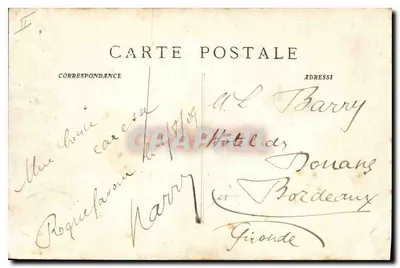 II
CARTE POSTALE
CORRESPONDANCE
ADRESSE
Une
caresse
Roquefavour
/8/09
Harry
Barry
Hôtel des
Douanes
à
Bordeaux
Gironde